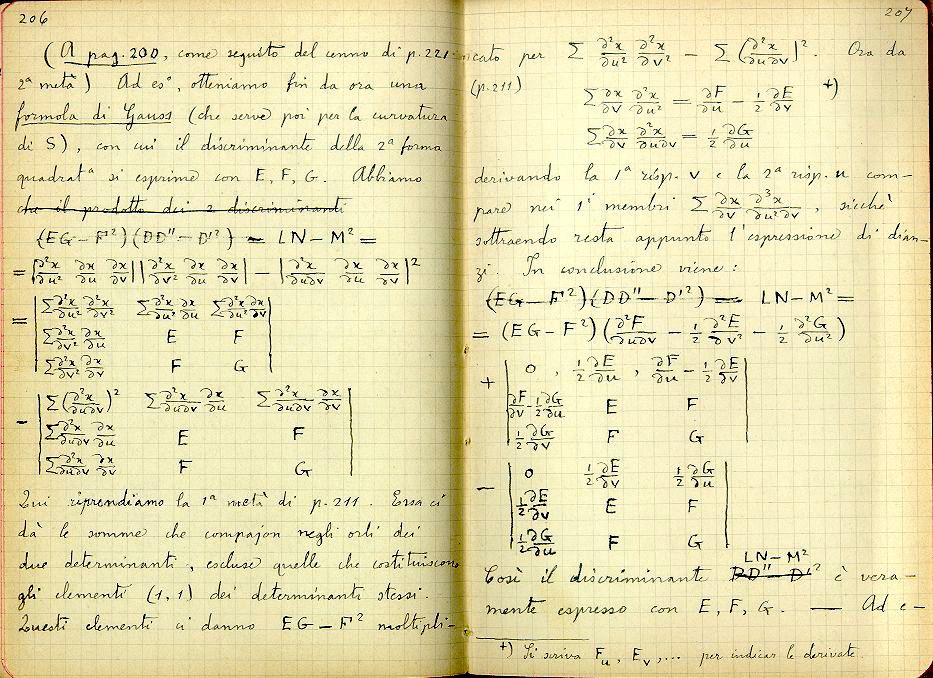 206
(A pag. 200, come seguito del cenno di p. 221
2ª metà) Ad es°, otteniamo fin da ora una
formola di Gauss (che serve poi per la curvatura
di S), con cui il discriminante della 2ª forma
quadratª si esprime con E, F, G. Abbiamo
che il prodotto dei 2 discriminanti
(EG-F²)(DD''-D'²) = LN-M² =
= |∂²x/∂u² ∂x/∂u ∂x/∂v| |∂²x/∂v² ∂x/∂u ∂x/∂v| - |∂²x/∂u∂v ∂x/∂u ∂x/∂v|²
= | Σ ∂²x/∂u² ∂²x/∂v² Σ ∂²x/∂u² ∂x/∂u Σ ∂²x/∂u² ∂x/∂v |
| Σ ∂²x/∂v² ∂x/∂u E F |
| Σ ∂²x/∂v² ∂x/∂v F G |
- | Σ (∂²x/∂u∂v)² Σ ∂²x/∂u∂v ∂x/∂u Σ ∂²x/∂u∂v ∂x/∂v |
| Σ ∂²x/∂u∂v ∂x/∂u E F |
| Σ ∂²x/∂u∂v ∂x/∂v F G |
Qui riprendiamo la 1ª metà di p. 211. Essa ci
dà le somme che compajon negli orli dei
due determinanti, escluse quelle che costituiscono
gli elementi (1,1) dei determinanti stessi.
Questi elementi ci danno EG-F² moltipli-
207
cato per Σ ∂²x/∂u² ∂²x/∂v² - Σ (∂²x/∂u∂v)². Ora da
(p. 211) Σ ∂x/∂v ∂²x/∂u² = ∂F/∂u - 1/2 ∂E/∂v +)
Σ ∂x/∂v ∂²x/∂u∂v = 1/2 ∂G/∂u
derivando la 1ª risp. v e la 2ª risp. u com-
pare nei 1ⁱ membri Σ ∂x/∂v ∂³x/∂u²∂v, sicchè
sottraendo resta appunto l'espressione di dian-
zi. In conclusione viene:
(EG-F²)(DD''-D'²) = LN-M² =
= (EG-F²)(∂²F/∂u∂v - 1/2 ∂²E/∂v² - 1/2 ∂²G/∂u²)
+ | 0, 1/2 ∂E/∂u, ∂F/∂u - 1/2 ∂E/∂v |
| ∂F/∂v - 1/2 ∂G/∂u E F |
| 1/2 ∂G/∂v F G |
- | 0 1/2 ∂E/∂v 1/2 ∂G/∂u |
| 1/2 ∂E/∂v E F |
| 1/2 ∂G/∂u F G |
LN-M²
Così il discriminante DD''-D'² è vera-
mente espresso con E, F, G. — Ad e-
+) Si scriva Fᵤ, Eᵥ,... per indicar le derivate.